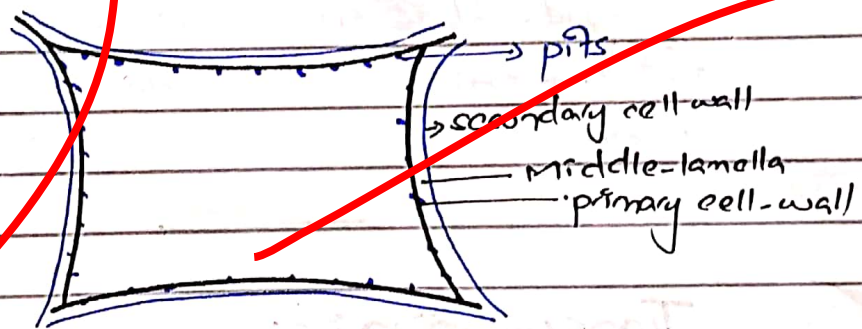 pits
secondary cell-wall
Middle-lamella
primary cell-wall